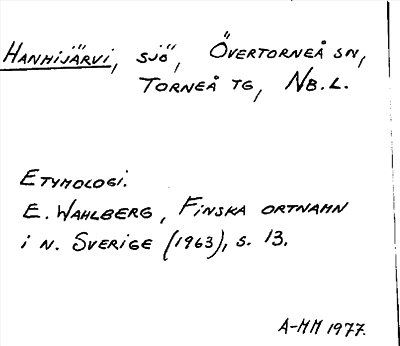 Hanhijärvi, sjö, Övertorneå sn,
Torneå tg, Nb.l.
Etymologi.
E. Wahlberg, Finska ortnamn
i n. Sverige (1963), s. 13.
A-MM 1977.